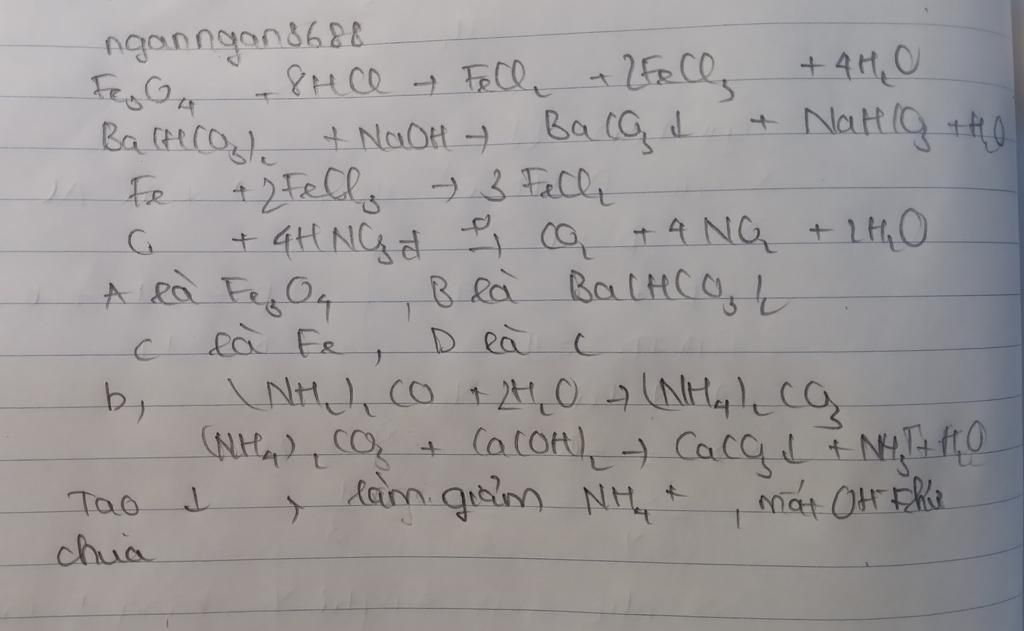 nganngan8688
Fe₃O₄ + 8HCl → FeCl₂ + 2FeCl₃ + 4H₂O
Ba(HCO₃)₂ + NaOH → BaCO₃↓ + NaHCO₃ + H₂O
Fe + 2FeCl₃ → 3FeCl₂
C + 4HNO₃đ t°→ CO₂ + 4NO₂ + 2H₂O
A là Fe₃O₄, B là Ba(HCO₃)₂
C là Fe, D là C
b, (NH₂)₂CO + 2H₂O → (NH₄)₂CO₃
(NH₄)₂CO₃ + Ca(OH)₂ → CaCO₃↓ + NH₃↑ + H₂O
Tạo ↓, làm giảm NH₄⁺, mất OH⁻ khử
chua